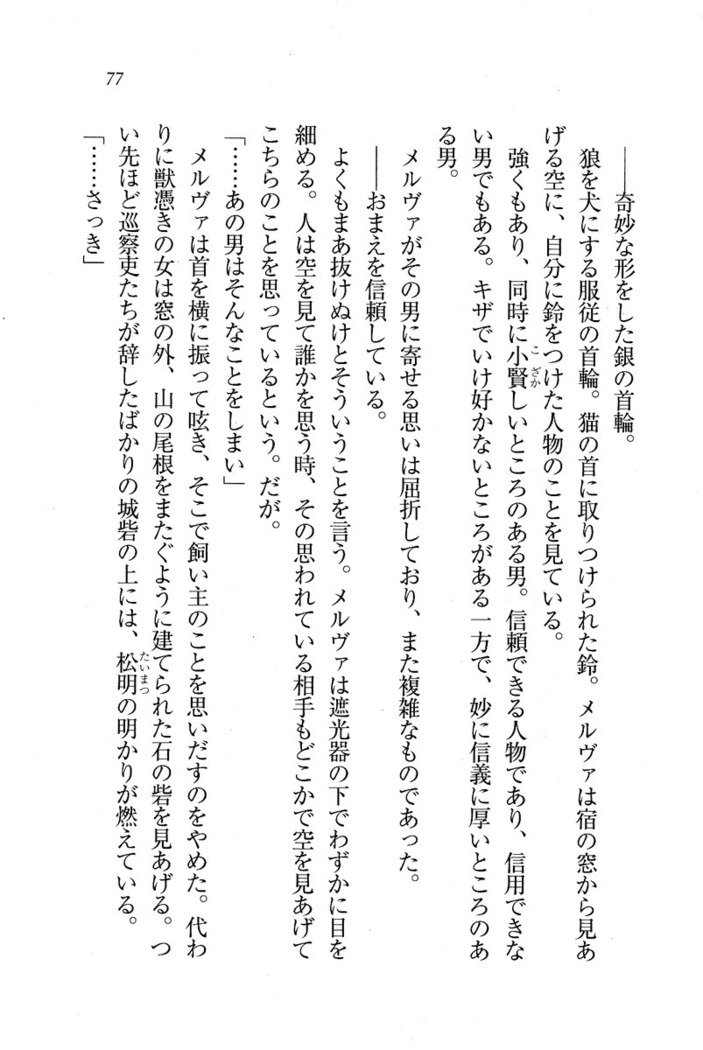 77
――奇妙な形をした銀の首輪。
狼を犬にする服従の首輪。猫の首に取りつけられた鈴。メルヴァは宿の窓から見あ
げる空に、自分に鈴をつけた人物のことを見ている。
強くもあり、同時に小賢しいところのある男。信頼できる人物であり、信用できな
い男でもある。キザでいけ好かないところがある一方で、妙に信義に厚いところのあ
る男。
メルヴァがその男に寄せる思いは屈折しており、また複雑なものであった。
――おまえを信頼している。
よくもまあ抜けぬけとそういうことを言う。メルヴァは遮光器の下でわずかに目を
細める。人は空を見て誰かを思う時、その思われている相手もどこかで空を見あげて
こちらのことを思っているという。だが。
「……あの男はそんなことをしまい」
メルヴァは首を横に振って呟き、そこで飼い主のことを思いだすのをやめた。代わ
りに獣憑きの女は窓の外、山の尾根をまたぐように建てられた石の砦を見あげる。つ
い先ほど巡察吏たちが辞したばかりの城砦の上には、松明の明かりが燃えている。
「……さっき」